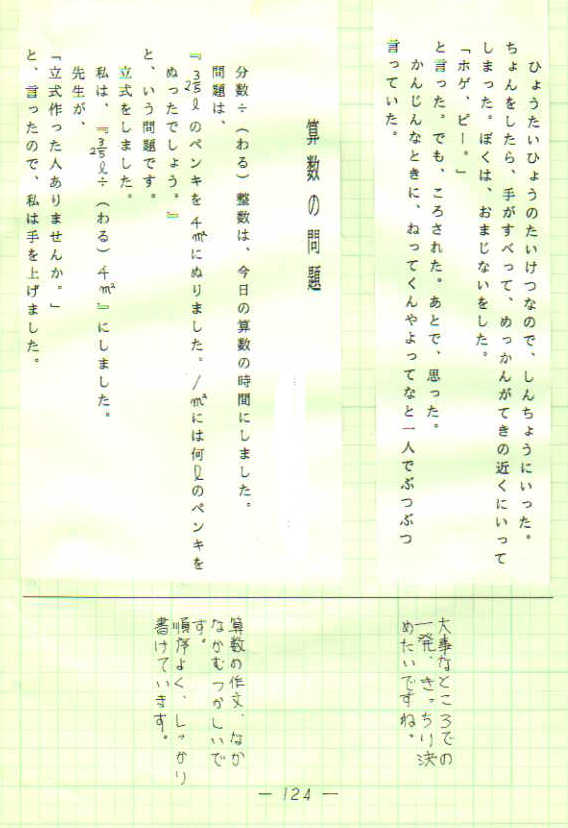 ひょうたいひょうのたいけつなので、しんちょうにいった。
ちょんをしたら、手がすべって、めっかんがてきの近くにいって
しまった。ぼくは、おまじないをした。
「ホゲ、ピー。」
と言った。でも、ころされた。あとで、思った。
かんじんなときに、ねってくんやよってなと一人でぶつぶつ
言っていた。
算数の問題
分数÷（わる）整数は、今日の算数の時間にしました。
問題は、
『2 3/5ℓのペンキを4m²にぬりました。1m²には何ℓのペンキを
ぬったでしょう。』
と、いう問題です。
立式をしました。
私は、『2 3/5ℓ÷（わる）4m²』にしました。
先生が、
「立式作った人ありませんか。」
と、言ったので、私は手を上げました。
大事なところでの
一発、きっちり決
めたいですね。
算数の作文、なか
なかむつかしいで
す。
順序よく、しっかり
書けています。
— 124 —